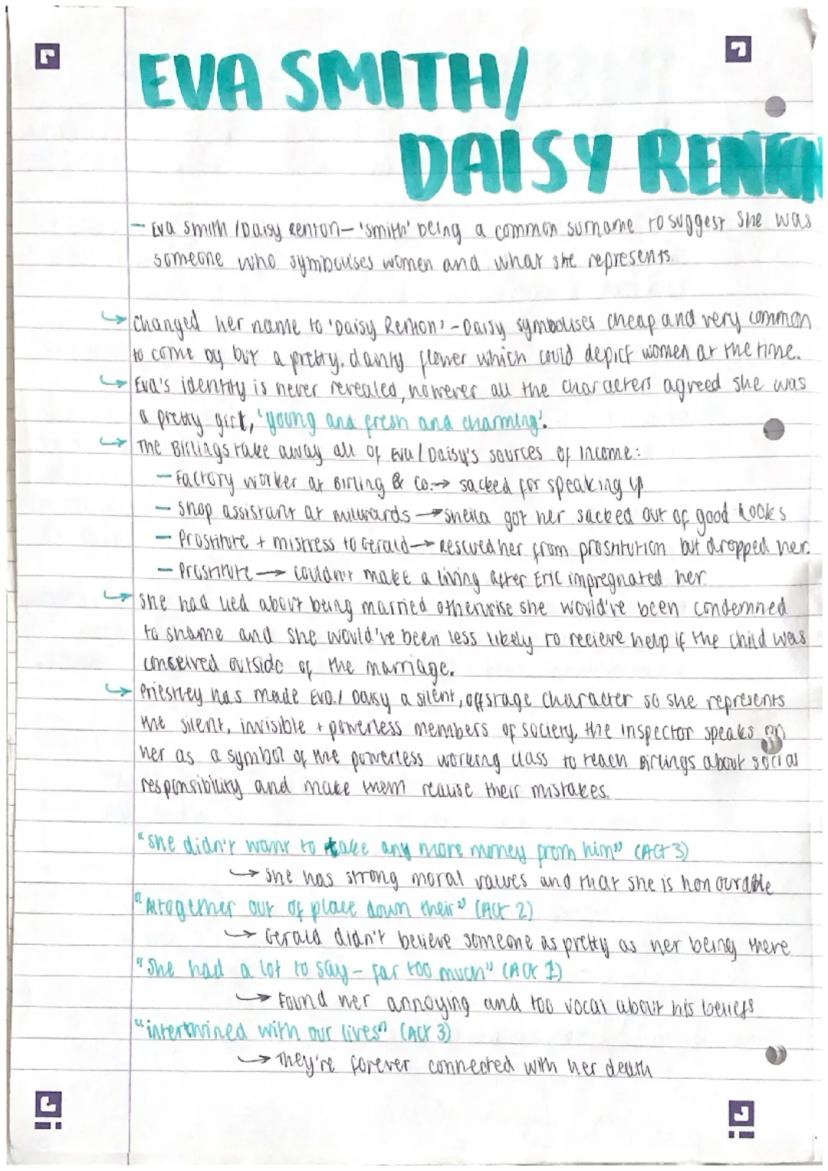 EVA SMITH/
DAISY RENTON
- Eva Smith / Daisy Renton - 'Smith' being a common surname to suggest she was
someone who symbolises women and what she represents.
↳ Changed her name to 'Daisy Renton' - Daisy symbolises cheap and very common
to come by but a pretty, dainty flower which could depict women at the time.
↳ Eva's identity is never revealed, however all the characters agreed she was
a pretty girl, 'young and fresh and charming'.
↳ The Birlings take away all of Eva/Daisy's sources of income:
- Factory worker at Birling & Co. → sacked for speaking up
- Shop assistant at Milwards → Sheila got her sacked out of good looks
- Prostitute + mistress to Gerald → Rescued her from prostitution but dropped her.
- Prostitute → couldn't make a living after Eric impregnated her.
↳ She had lied about being married otherwise she would've been condemned
to shame and she would've been less likely to recieve help if the child was
conceived outside of the marriage.
↳ Priestley has made Eva/Daisy a silent, offstage character so she represents
the silent, invisible + powerless members of society, the inspector speaks on
her as a symbol of the powerless working class to teach Birlings about social
responsibility and make them realise their mistakes.
"She didn't want to take any more money from him" (ACT 3)
→ She has strong moral values and that she is honourable
"Altogether out of place down their" (ACT 2)
→ Gerald didn't believe someone as pretty as her being there
"She had a lot to say - far too much" (ACT 1)
→ Found her annoying and too vocal about his beliefs
"intertwined with our lives" (ACT 3)
→ They're forever connected with her death